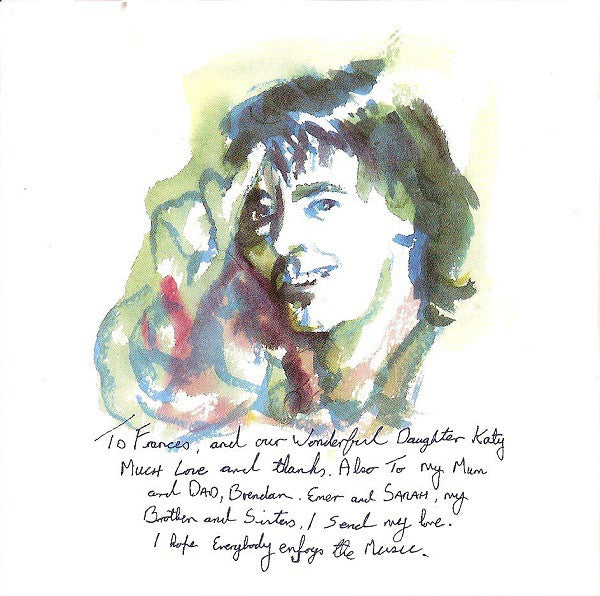 To Frances, and our Wonderful Daughter Katy
Much Love and thanks. Also To my Mum
and Dad, Brendan. Emer and Sarah, my
Brother and Sisters, I send my love.
I hope Everybody enjoys the Music.